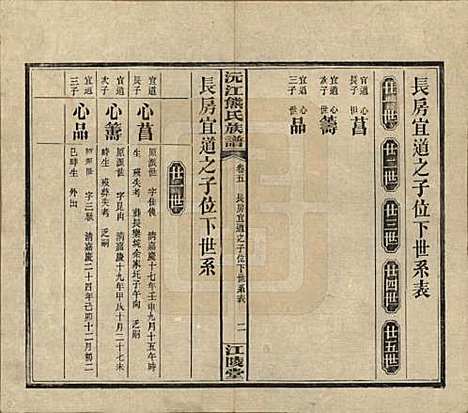 長房宜道之子位下世系表
廿一世 廿二世 廿三世 廿四世 廿五世
宜道長子 心菖
宜道次子 心籌
宜道三子 心品
沅江熊氏族譜 卷五 長房宜道之子位下世系表 二 江陵堂
長房宜道之子位下世系
廿一世
宜道長子 心菖
原派世 字仙儀 清嘉慶十七年壬申九月十五午時
生 歿失考 葬長樂垸余家坨子午向 乏嗣
宜道次子 心籌
原派世 字見南 清嘉慶十九年甲戌十月二十七
時生 歿葬失考 乏嗣
宜道三子 心品
原派世 字三順 清嘉慶二十四年己卯十月初二
巳時生 外出